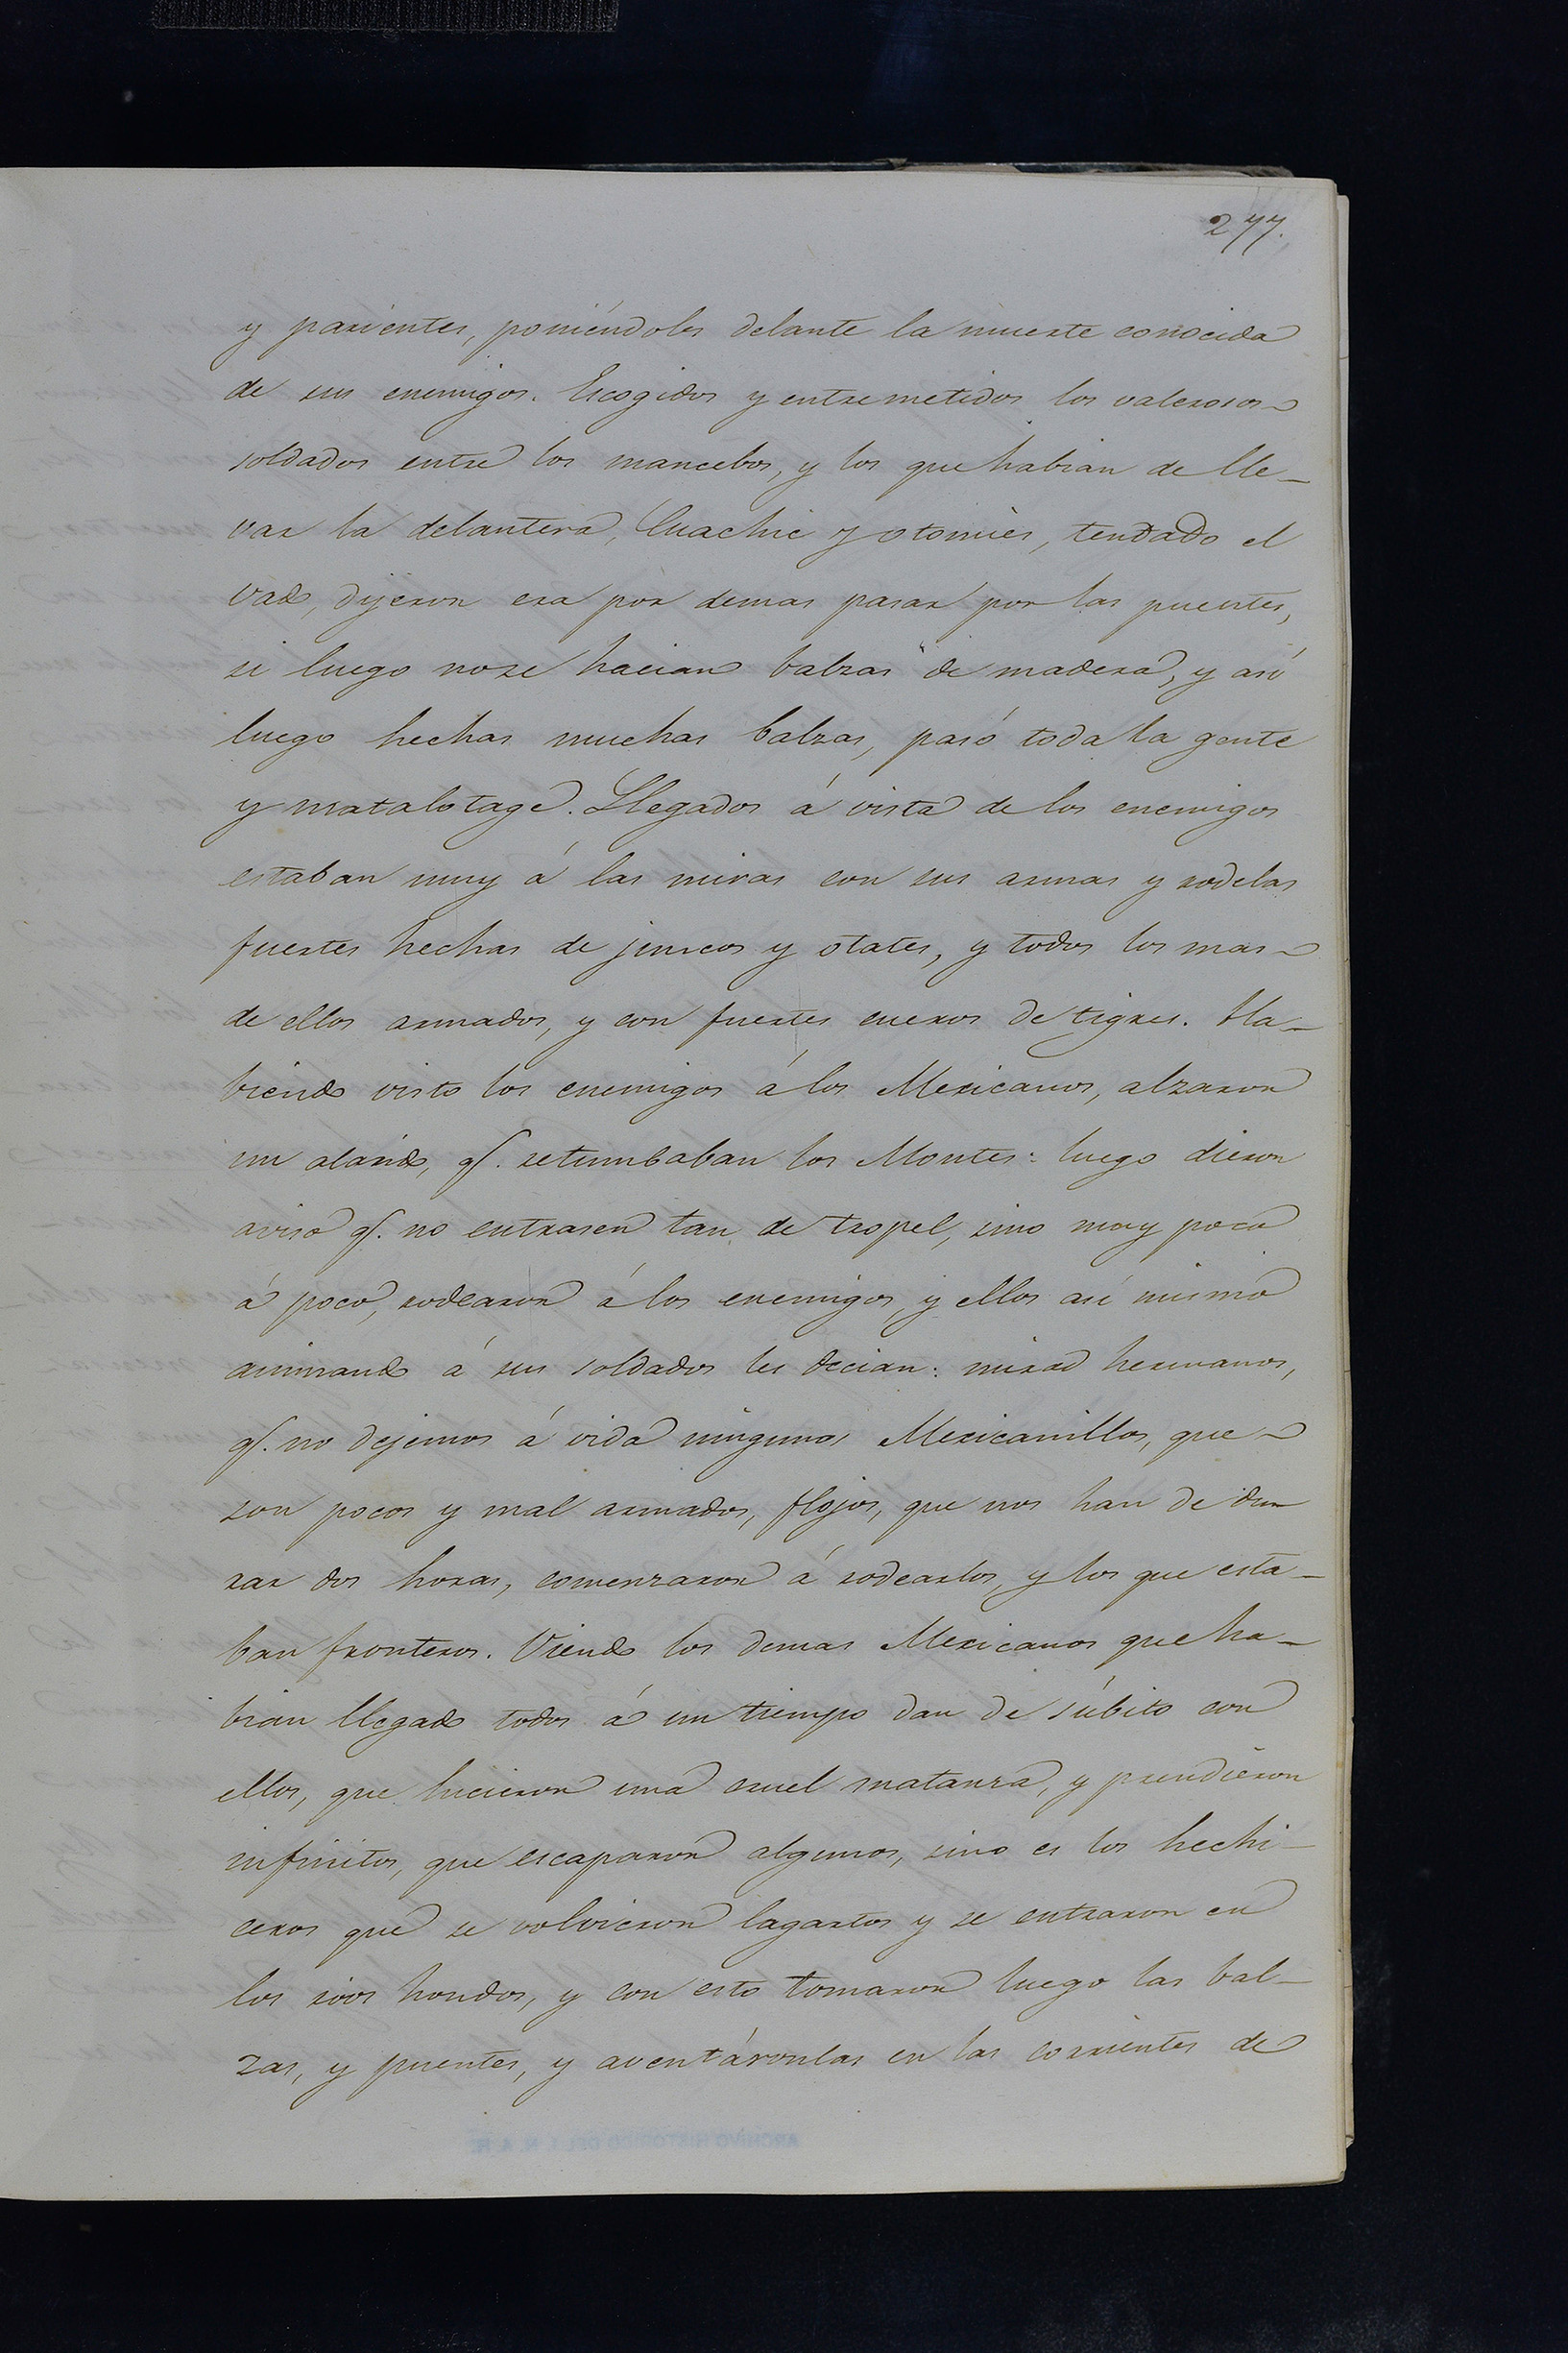 277.
y parientes, poniéndoles delante la muerte conocida
de sus enemigos. Escogidos y entremetidos los valerosos
soldados entre los mancebos, y los que habian de lle-
var la delantera, Cuachic y otomíes, tendado el
vado, dijeron era por demas pasar por las puentes,
si luego no se hacian balzas de madera, y así
luego hechas muchas balzas, pasó toda la gente
y matalotage. Llegados á vista de los enemigos
estaban muy á las miras con sus armas y rodelas
fuertes hechas de juncos y otates, y todos los mas
de ellos armados, y con fuertes cueros de tigres. Ha-
biendo visto los enemigos á los Mexicanos, alzaron
un alarido, q. retumbaban los Montes: luego dieron
aviso q. no entrasen tan de tropel, sino muy poco
á poco, rodearon á los enemigos, y ellos asi mismo
animando á sus soldados les decian: mirad hermanos,
q. no dejemos á vida ningunos Mexicanillos, que
son pocos y mal armados, flojos, que nos han de du-
rar dos horas, comenzaron á rodearlos, y los que esta-
ban fronteros. Viendo los demas Mexicanos que ha-
bian llegado todos á un tiempo dan de súbito con
ellos, que hicieron una cruel matanza, y prendieron
infinitos, que escaparon algunos, sino es los hechi-
ceros que se volvieron lagartos y se entraron en
los rios hondos, y con esto tomaron luego las bal-
zas, y puentes, y aventáronlas en las corrientes de